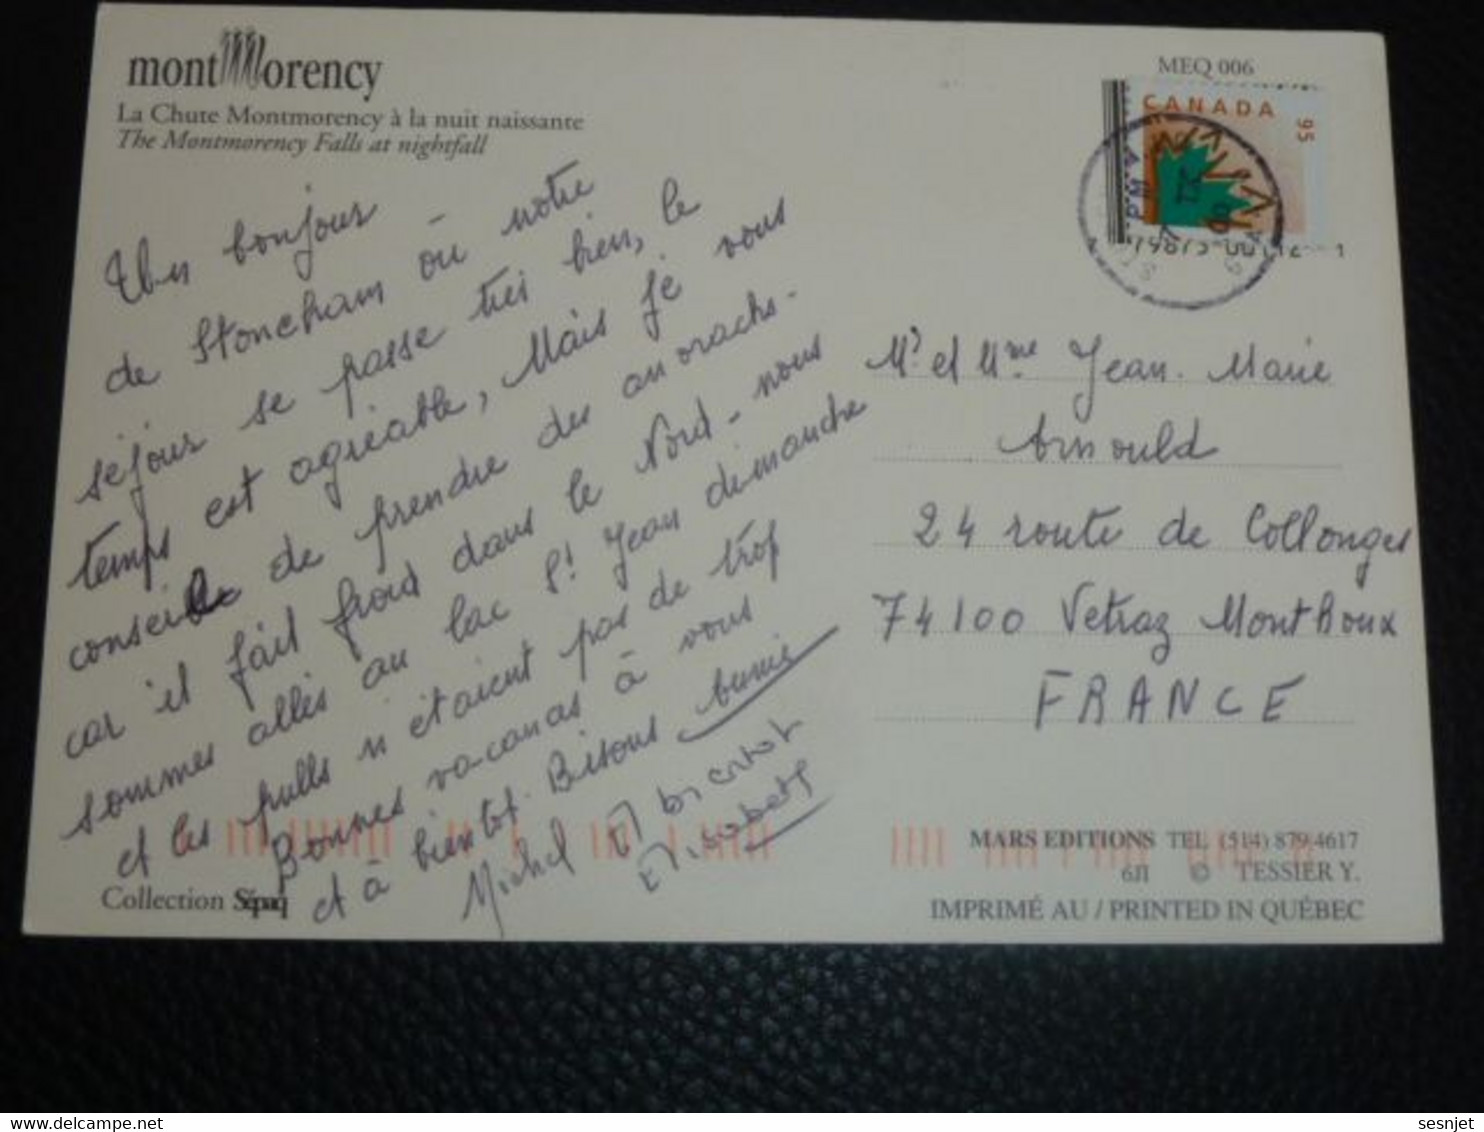 montmorency
La Chute Montmorency à la nuit naissante
The Montmorency Falls at nightfall
MEQ 006
CANADA
95
PM
Un bonjour
de Stoneham où notre
séjour se passe très bien, le
temps est agréable, Mais je vous
conseille de prendre des anorachs.
car il fait froid dans le Nord - nous
sommes allés au lac St Jean dimanche
et les pulls n'étaient pas de trop
Bonnes vacances à vous
et à bientôt. Bisous
Michel
Elisabeth
Mr et Mme Jean. Marie
Arnould
24 route de Collonges
74100 Vetraz Monthoux
FRANCE
MARS EDITIONS TEL (514) 879 4617
6JI © TESSIER Y.
IMPRIMÉ AU / PRINTED IN QUÉBEC
Collection Sépaq
sesnjet